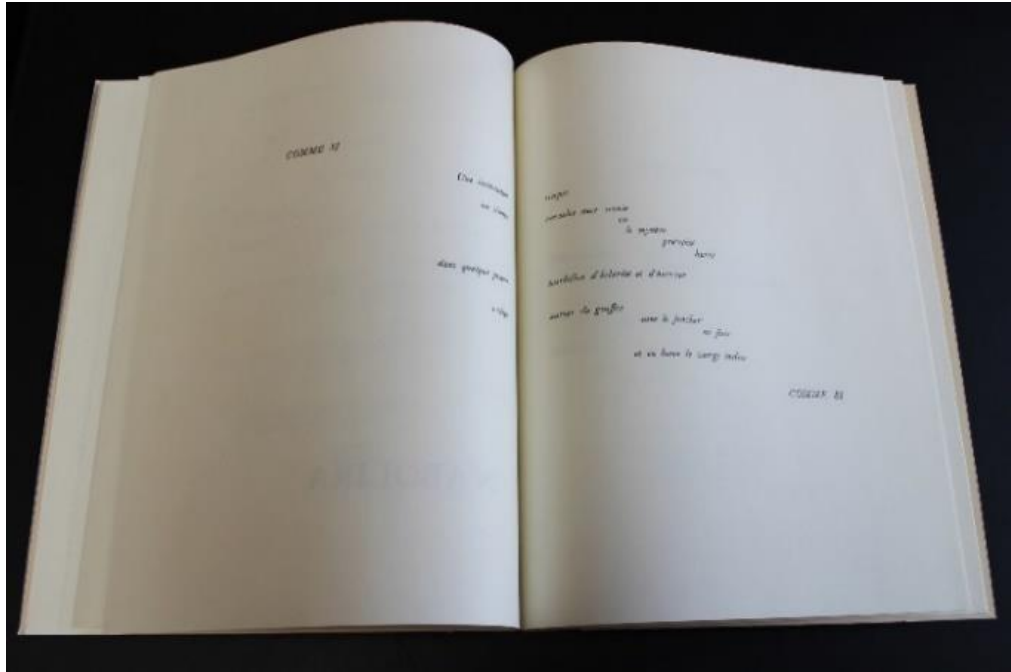 COMME SI
Une insinuation
au silence
dans quelque proche
simple
avec ironie
ou
le mystère
hurlé
tourbillon d'hilarité et d'horreur
autour du gouffre
sans le joncher
ni fuir
et en berce le vierge indice
COMME SI